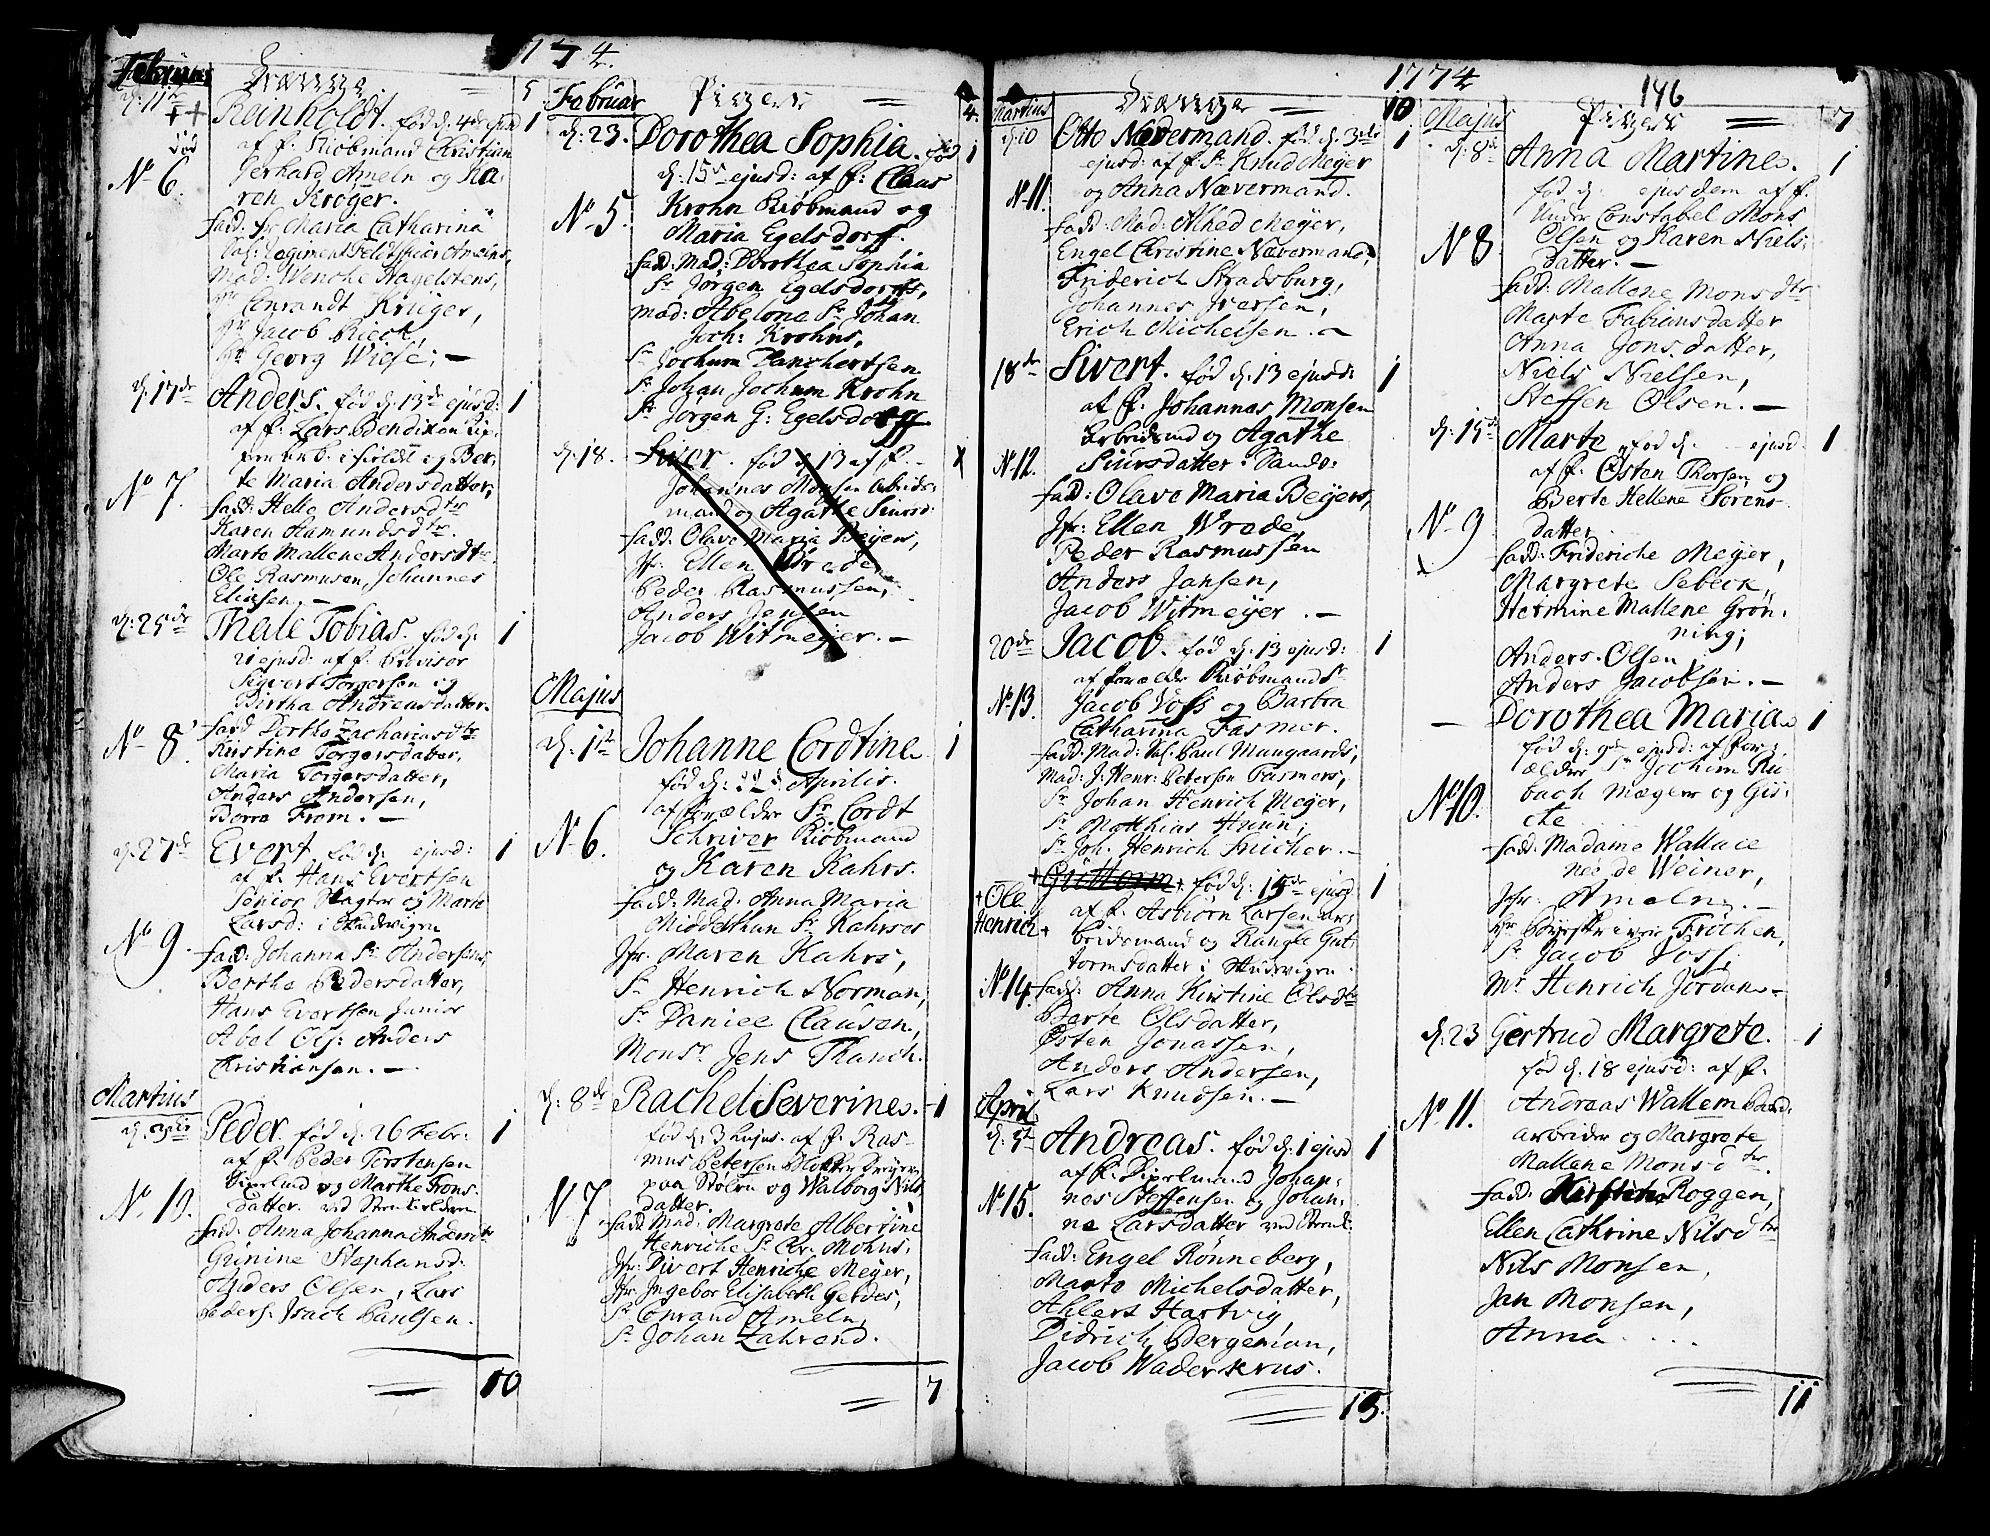 1774.
Februar Drænge 5
d: 11te Reinholdt. fød d: 4de ejusd 1
død af f. Kiøbmand Christian
No 6 Gerhard Ameln og Ka-
ren Krøger.
fadd: fr Maria Catharina
Mad: Wenche Hagelstens,
Hr Conrandt Krüger,
Hr Jacob Rieck,
Hr Georg Wiese; —
d: 17de Anders. fød d: 13de ejusd: 1
af f: Lars Bendixen
og Ber-
No 7. te Maria Andersdatter,
fadd: Helle Andersdtr
Karen Aamundsdtr.
Marte Mallene Andersdtr
Ole Rasmusen, Johannes
Eliasen. —
d: 25de Thale Tobias. fød d. 1
21 ejusd: af f. Provisor
Sivert Torgersen og
Birtha Andreasdatter.
No 8. fadd Dorthe Zachariasdtr
Kirstine Torgersdatter,
Maria Torgersdatter,
Anders Andersen,
Børre From. —
d: 27de Evert fød d. ejusd: 1
af f. Hans Evertsen
Senior Slagter og Marte
Larsd: i Skudevigen
No 9. fadd: Johanna Sr Andersens,
Berthe Pedersdatter,
Hans Evertsen Junior
Abel Ols: Anders
Christiansen. —
Martius
d: 3die Peder. fød d. 26 Febr: 1
af f. Peder Torstensen
og Marthe Trons-
No. 10. datter. ved
fadd: Anna Johanna Andersdtr
Gunine Stephansd:
Anders Olsen, Lars
Peders: Isach Paulsen.
10
Februar Piger 4.
d: 23. Dorothea Sophia. fød 1
d: 15de ejusd: af f: Claus
No 5. Krohn Kiøbmand og
Maria Egelsdorff.
fadd: Mad: Dorothea Sophia
Sr Jørgen Egelsdorffs,
Mad: Abelona Sr Johan
Joch: Krohns,
Sr Jochum Danchertsen
Sr Johan Jochum Krohn
Sr Jørgen G: Egelsdorff
d: 18. Siver. fød d 13 af f. x
Johannes Monsen Arbeids-
mand og Agathe Siursd:
fadd: Olave Maria Beyers,
Jfr: Ellen Wrede
Peder Rasmussen,
Anders Jensen
Jacob Witmeyer. —
Majus
d: 1te Johanne Cordtine. 1
fød d: Aprilis.
af forældre Sr. Cordt
No 6. Schriver Kiøbmand
og Karen Kahrs.
fadd: Mad: Anna Maria
Middethun Sr Kahrses
Jfr: Maren Kahrs,
Sr Henrich Norman,
Sr Daniel Clausen,
Monsr Jens Thanch.
d: 8de Rachel Severine. 1
fød d: 3 hujus. af f. Ras-
mus Petersen
No 7 paa Stølen og Walborg Nils
datter.
fadd Mad: Margrete Albertine
Henriche Sr Chr: Mohns,
Jfr: Divert Henriche Meyer,
Jfr: Ingebor Elisabeth Gerdes,
Sr Conrand Ameln,
Sr Johan Zahrend.
7
1774 146
Martius Drænge 10
d: 10 Otto Nævermand. fød d: 3die 1
ejusd: af f. Sr Knud Meyer
No 11. og Anna Nævermand.
fadd: Mad: Ahlhed Meyer,
Engel Christine Nævermand,
Friderich Stradsburg,
Johannes Iversen,
Erich Michelsen. —
18de Sivert. fød d: 13 ejusd: 1
af f. Johannes Monsen
Arbeidsmd og Agathe
No 12. Siursdatter i Sands:
fadd: Olave Maria Beyers,
Jfr: Ellen Wrede,
Peder Rasmussen
Anders Jansen,
Jacob Witmeyer. —
20de Jacob. fød d. 13 ejusd: 1
af forældre Kiøbmand Sr
No 13. Jacob Voss og Barbra
Catharina Fasmer.
fadd: Mad: Sal: Paul Mangaards,
Mad: J: Henr: Petersen Fasmers,
Sr Johan Henrich Meyer,
Sr Matthias
Sr Joh. Henrich Fricher. —
+Guttorm+ fød d: 15de ejusd: 1
+Ole Henrich+ af f. Asbiørn Larsen Ar-
beidsmand og Rangle Gut-
tormsdatter i Skudevigen.
No 14. fadd: Anna Kirstine Olsdtr
Berte Olsdatter,
Østen Jonassen,
Anders Andersen,
Lars Knudsen. —
April
d: 5te Andreas. fød d: 1 ejusd 1
af f. Johan-
No 15. nes Steffensen og Johan-
ne Larsdatter ved
fadd: Engel Rønneberg,
Marte Michelsdatter,
Ahlert Hartvig
Didrich Bergenian,
Jacob Waderskrus.
15.
Majus Piger 7
d: 8de Anna Martine. 1
fød d: ejusdem af f.
Under Constabel Mons
No 8 Olsen og Karen Niels-
datter. —
fadd: Mallene Monsdtr
Marte Fabiansdatter
Anna Jonsdatter,
Niels Nielsen,
Steffen Olsen. —
d: 15de Marte fød d: — ejusd 1
af f. Østen Thorsen og
No 9 Berte Hellene Sørens-
datter
fadd: Frideriche Meyer,
Margrete Sebeck
Hermine Mallene Grøn-
ning;
Anders Olsen,
Anders Jacobsen. —
— Dorothea Maria. 1
fød d: 9de ejusd: af For-
ældre Sr Jochim Ru-
No 10. bach Mægler og Gis-
cte
fadd: Madame Wallace
née de Weiner,
Jfr: Ameln. —
Frøchen,
Sr Jacob Voss,
Mr Henrich Jordan. —
d: 23 Gertrud Margrete. 1
fød d. 18 ejusd: af f.
No 11. Andreas Wallem Baad-
arbeider og Margrete
Mallene Monsdtr.
fadd: Kirstine Roggen,
Ellen Cathrine Nilsdtr
Nils Monsen,
Jan Monsen,
Anna . . . .
11